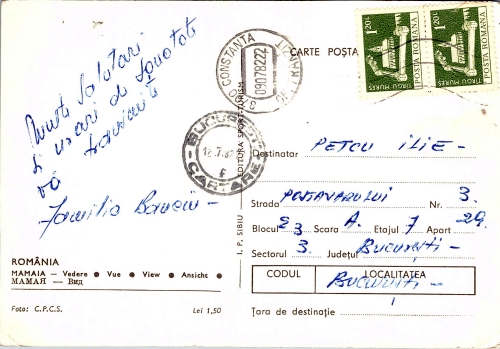 CARTE POȘTA
1,20 L
POSTA ROMANA
TÎRGU MUREȘ
1,20 L
POSTA ROMANA
TÎRGU MUREȘ
CONSTANTA
0907822
BUCUREȘTI
CARTARE
f
EDITURA SPORT-TURISM
I. P. SIBIU
Multe Salutari
și urari de Sanatate
vă
Familia
Destinatar PETCU ILIE-
Strada Nr. 3.
Blocul E3 Scara A. Etajul 7 Apart 29.
Sectorul 3. Județul București-
CODUL LOCALITATEA
București-
Țara de destinație
ROMÂNIA
MAMAIA — Vedere ● Vue ● View ● Ansicht ●
МАМАЯ — Вид
Foto: C.P.C.S. Lei 1,50